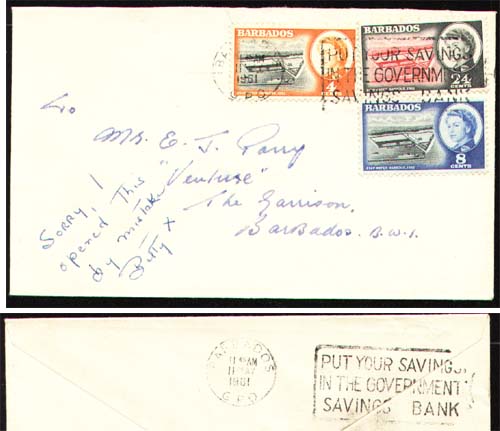 BARBADOS
4
BARBADOS
24
CENTS
BARBADOS
DEEP WATER HARBOUR, 1961
8
CENTS
1961
G.P.O.
PUT YOUR SAVINGS
IN THE GOVERNMENT
SAVINGS BANK
To
Mr. E. J. Parry
"Venture"
The Garrison,
Barbados. B.W.I.
SORRY, I
opened This
by mistake
Betty X
BARBADOS
11 45AM
11 MAY
1961
G.P.O.
PUT YOUR SAVINGS
IN THE GOVERNMENT
SAVINGS BANK